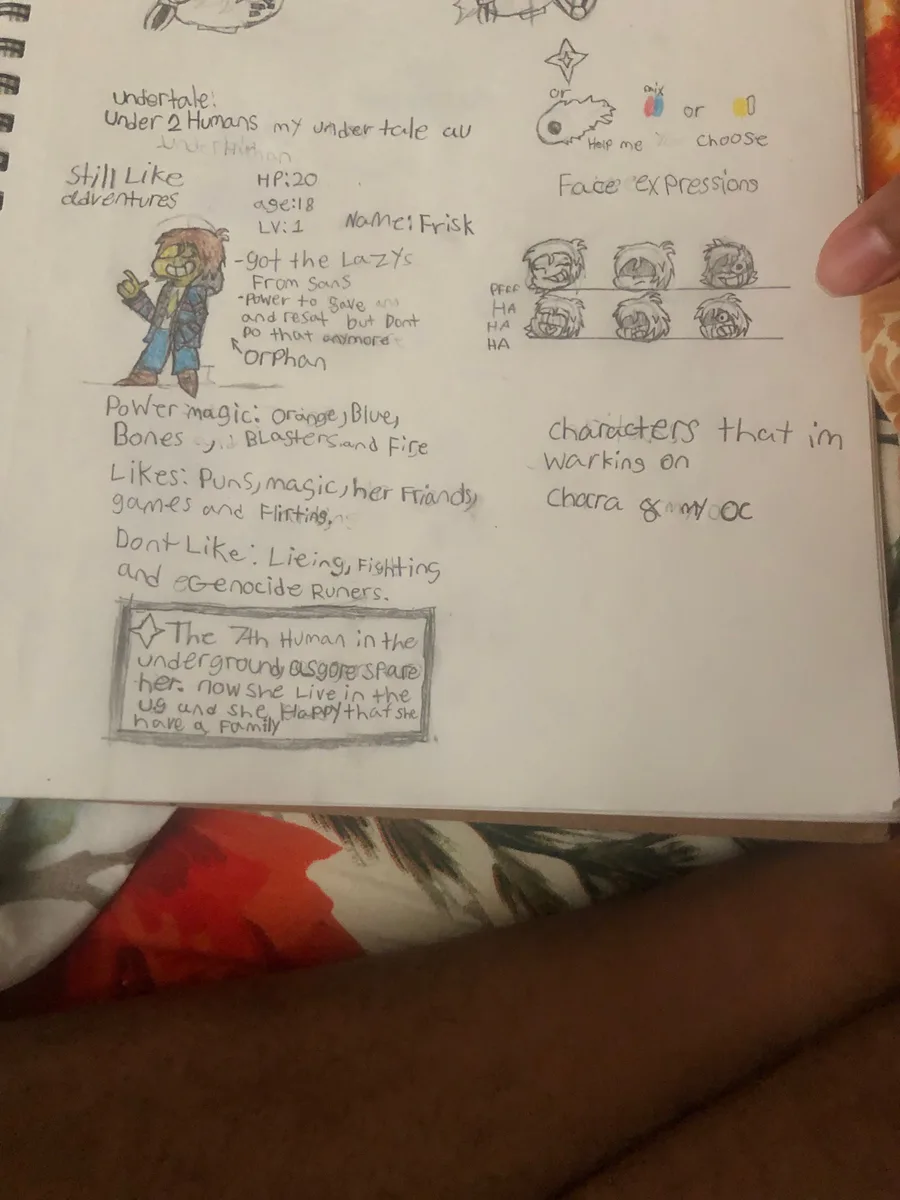 undertale:
Under 2 Humans my under tale au
Still Like
adventures
HP:20
age:18
LV:1
Name: Frisk
-got the Lazys
From Sans
-Power to Save
and reset but Dont
Do that anymore
orphan
Power magic: orange, Blue,
Bones, Blasters and Fire
Likes: Puns, magic, her Friands,
games and Flirting,
Dont Like: Lieing, Fighting
and Genocide Runers.
The 7th Human in the
underground, asgore spare
her. now she Live in the
UG and she Happy that she
have a Family
or
mix
or
Help me
choose
Face expressions
PFFF
HA
HA
HA
characters that im
warking on
Chara & my OC